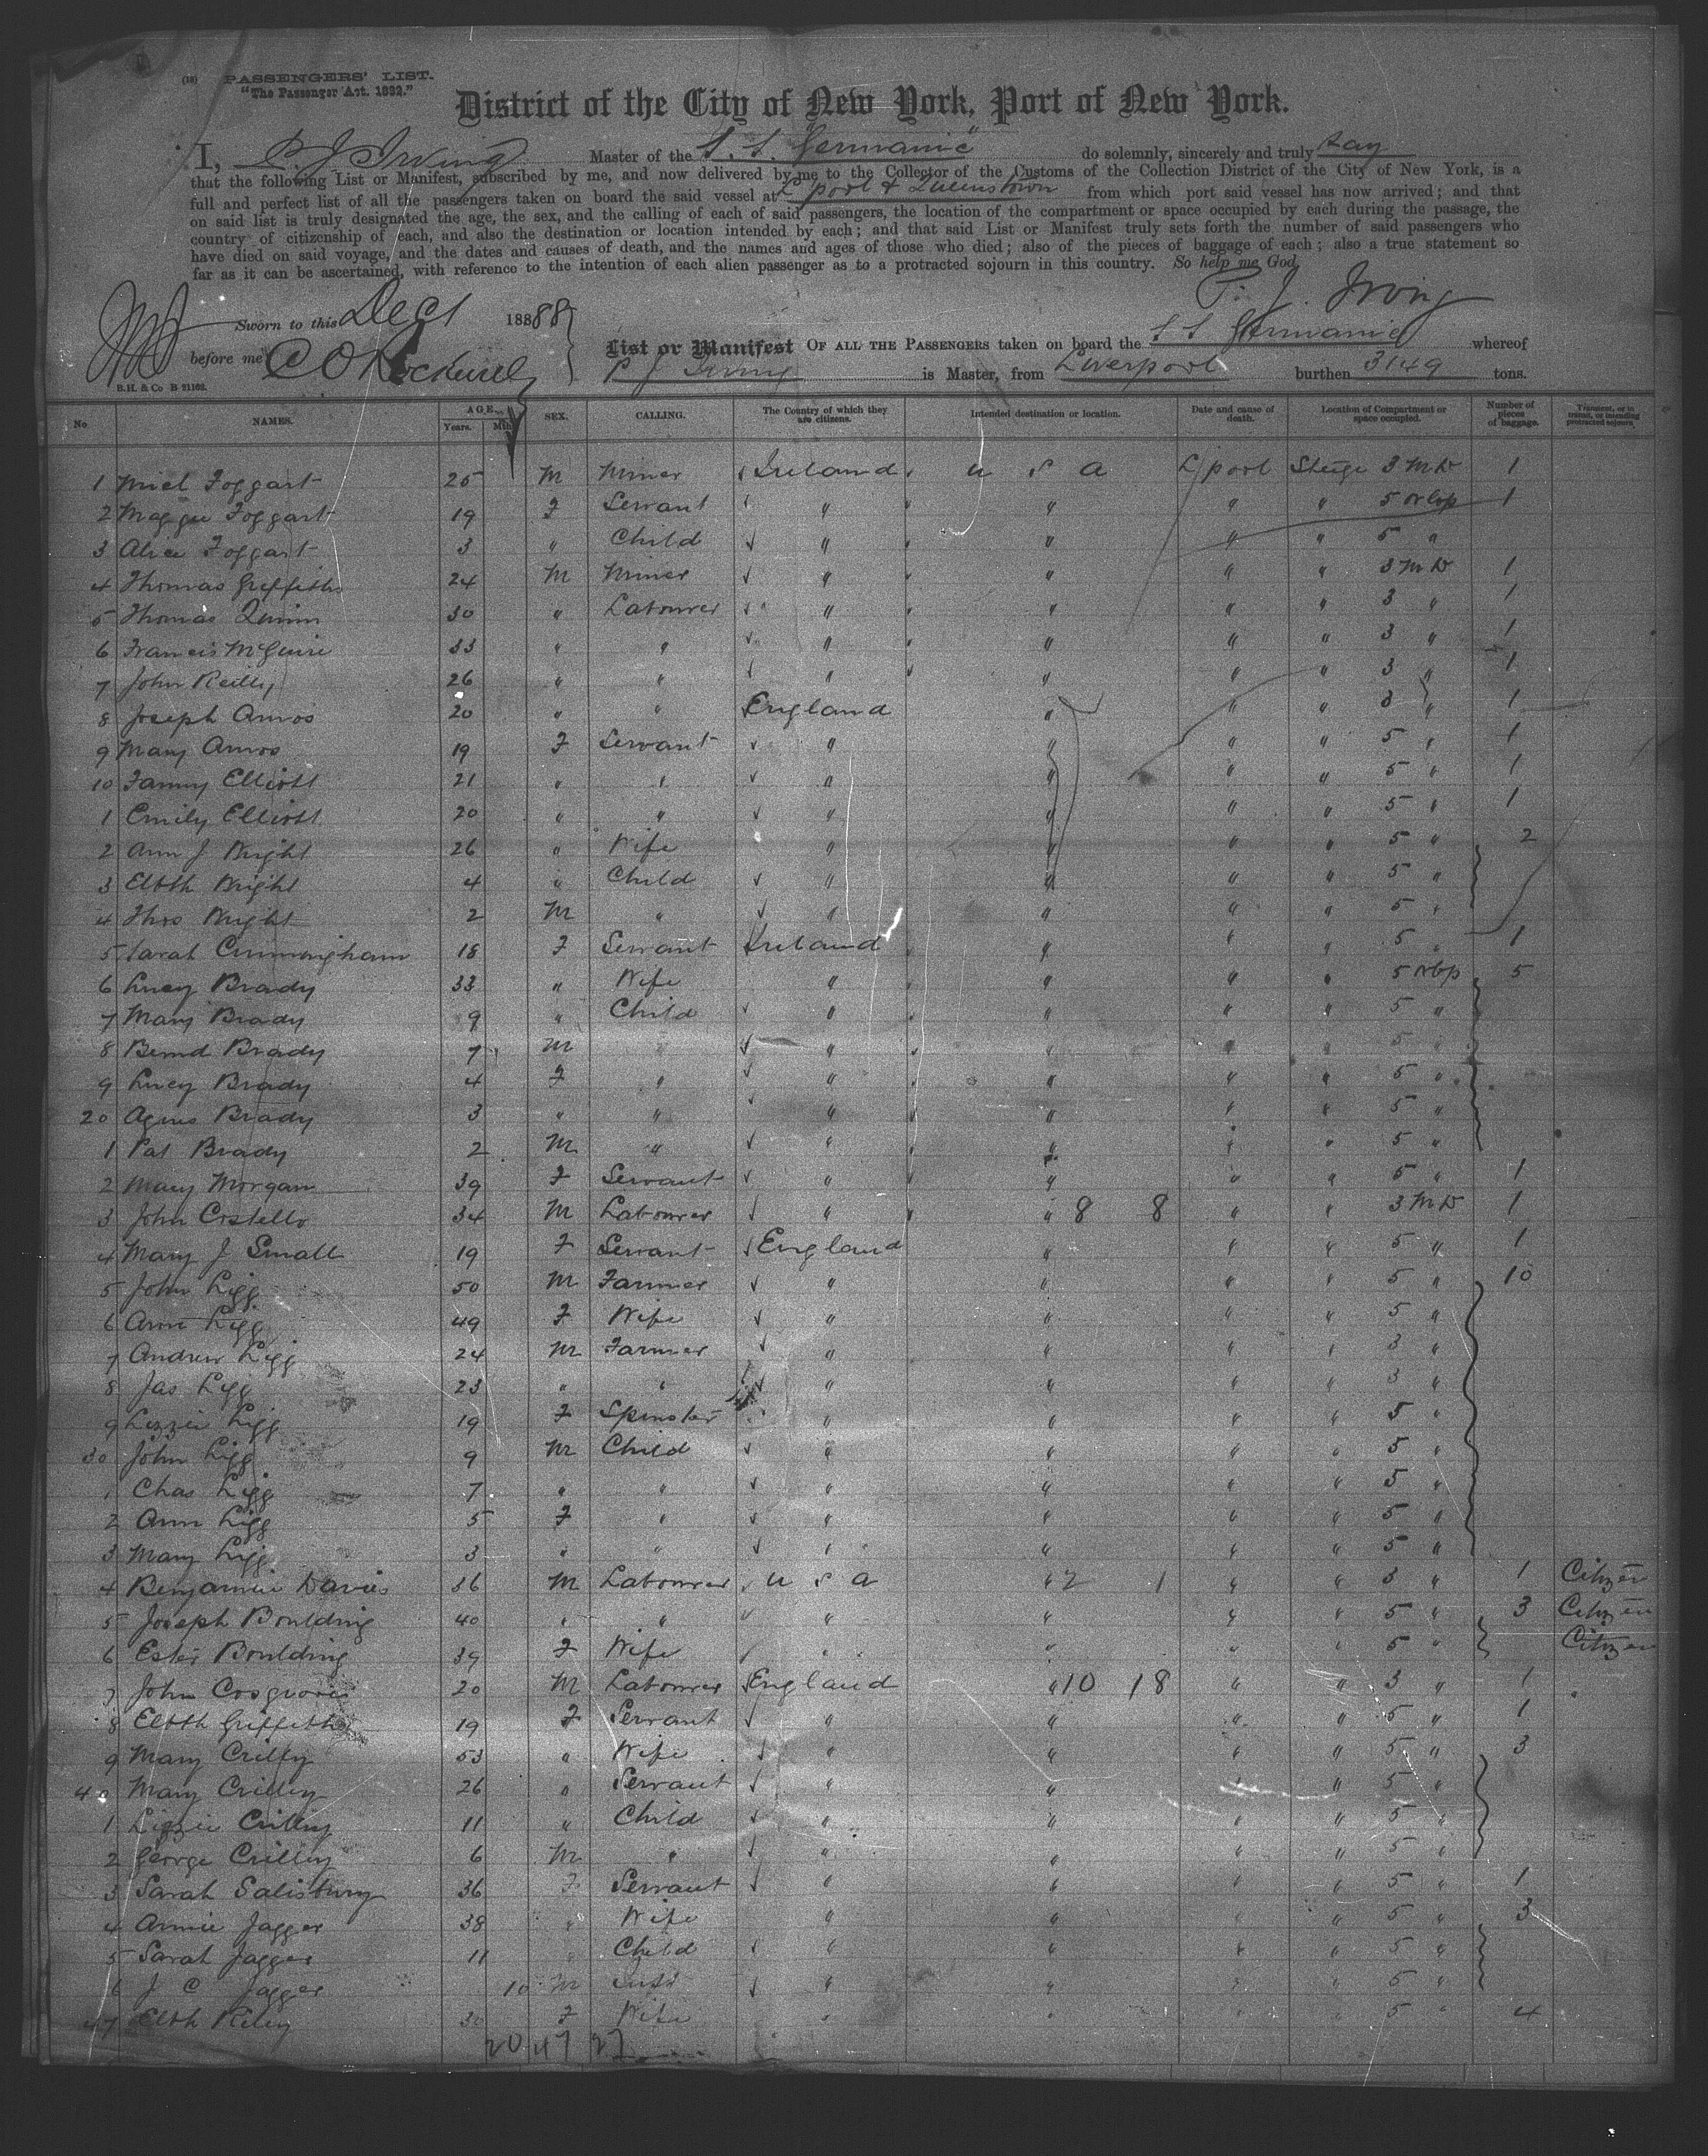 (18) PASSENGERS' LIST.
"The Passenger Act. 1882."
District of the City of New York, Port of New York.
I, P. J. Irving Master of the S. S. "Germanic" do solemnly, sincerely and truly say
that the following List or Manifest, subscribed by me, and now delivered by me to the Collector of the Customs of the Collection District of the City of New York, is a
full and perfect list of all the passengers taken on board the said vessel at L'pool & Queenstown from which port said vessel has now arrived; and that
on said list is truly designated the age, the sex, and the calling of each of said passengers, the location of the compartment or space occupied by each during the passage, the
country of citizenship of each, and also the destination or location intended by each; and that said List or Manifest truly sets forth the number of said passengers who
have died on said voyage, and the dates and causes of death, and the names and ages of those who died; also of the pieces of baggage of each; also a true statement so
far as it can be ascertained, with reference to the intention of each alien passenger as to a protracted sojourn in this country. So help me God,
P. J. Irving
Sworn to this Dec 1 18888
before me C O Rockwell
B.H. & Co B 21162.
List or Manifest OF ALL THE PASSENGERS taken on board the S S Germanic whereof
P J Irving is Master, from Liverpool burthen 3149 tons.
No NAMES. AGE. Years. Mth. SEX. CALLING. The Country of which they are citizens. Intended destination or location. Date and cause of death. Location of Compartment or space occupied. Number of pieces of baggage. Transient, or in transit, or intending protracted sojourn
1 Micl Foggart 25 M Miner Ireland U S A L'pool Steige 3 M D 1
2 Maggie Foggart 19 F Servant " " " " 5 Orlop 1
3 Alice Foggart 3 " Child " " " " 5 "
4 Thomas Griffiths 24 M Miner " " " " 3 M D 1
5 Thomas Quinn 30 " Labourer " " " " 3 " 1
6 Francis McGuire 33 " " " " " " 3 " 1
7 John Reilly 26 " " " " " " 3 " 1
8 Joseph Amos 20 " " England " " " 3 " 1
9 Mary Amos 19 F Servant " " " " 5 " 1
10 Fanny Elliott 21 " " " " " " 5 " 1
1 Emily Elliott 20 " " " " " " 5 " 1
2 Ann J Bright 26 " Wife " " " " 5 " 2
3 Elbth Bright 4 " Child " " " " 5 "
4 Thos Bright 2 M " " " " " 5 "
5 Sarah Cunningham 18 F Servant Ireland " " " 5 " 1
6 Lucy Brady 33 " Wife " " " " 5 Orlop 5
7 Mary Brady 9 " Child " " " " 5 "
8 Bernd Brady 7 M " " " " " 5 "
9 Lucy Brady 4 F " " " " " 5 "
20 Agnes Brady 3 " " " " " " 5 "
1 Pat Brady 2 M " " " " " 5 "
2 Mary Morgan 39 F Servant " " " " 5 " 1
3 John Costello 34 M Labourer " " 8 8 " " 3 M D 1
4 Mary J Small 19 F Servant England " " " 5 " 1
5 John Ligg 50 M Farmer " " " " 5 " 10
6 Ann Ligg 49 F Wife " " " " 5 "
7 Andrew Ligg 24 M Farmer " " " " 3 "
8 Jas Ligg 23 " " " " " " 3 "
9 Lizzie Ligg 19 F Spinster " " " " 5 "
30 John Ligg 9 M Child " " " " 5 "
1 Chas Ligg 7 " " " " " " 5 "
2 Ann Ligg 5 F " " " " " 5 "
3 Mary Ligg 3 " " " " " " 5 "
4 Benjamin Davies 36 M Labourer U S A " 2 1 " " 3 " 1 Citizen
5 Joseph Boulding 40 " " " " " " 5 " 3 Citizen
6 Ester Boulding 39 F Wife " " " " 5 " Citizen
7 John Cosgrove 20 M Labourer England " 10 18 " " 3 " 1
8 Elbth Griffiths 19 F Servant " " " " 5 " 1
9 Mary Crilly 53 " Wife " " " " 5 " 3
40 Mary Crilley 26 " Servant " " " " 5 "
1 Lizzie Crilley 11 " Child " " " " 5 "
2 George Crilley 6 M " " " " " 5 "
3 Sarah Salisbury 36 F Servant " " " " 5 " 1
4 Annie Jagger 38 " Wife " " " " 5 " 3
5 Sarah Jagger 11 " Child " " " " 5 "
6 J C Jagger 10 M Inft " " " " 5 "
47 Elbth Riley 30 F Wife " " " " 5 " 4
20 47 27